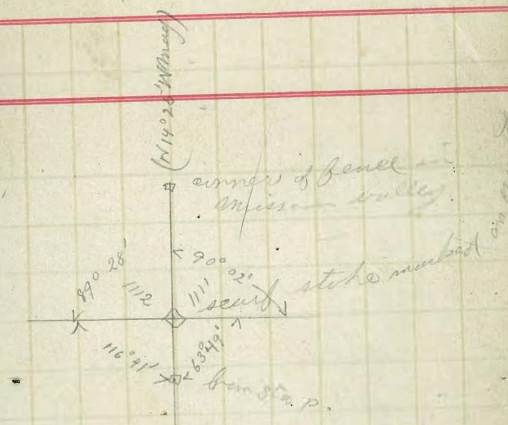 (N 14° 28' W mag)
corner of fence in
Mission valley
90° 02'
89° 28'
1112
1111
scurf stake marked
116° 41'
63° 49'
from sta p.